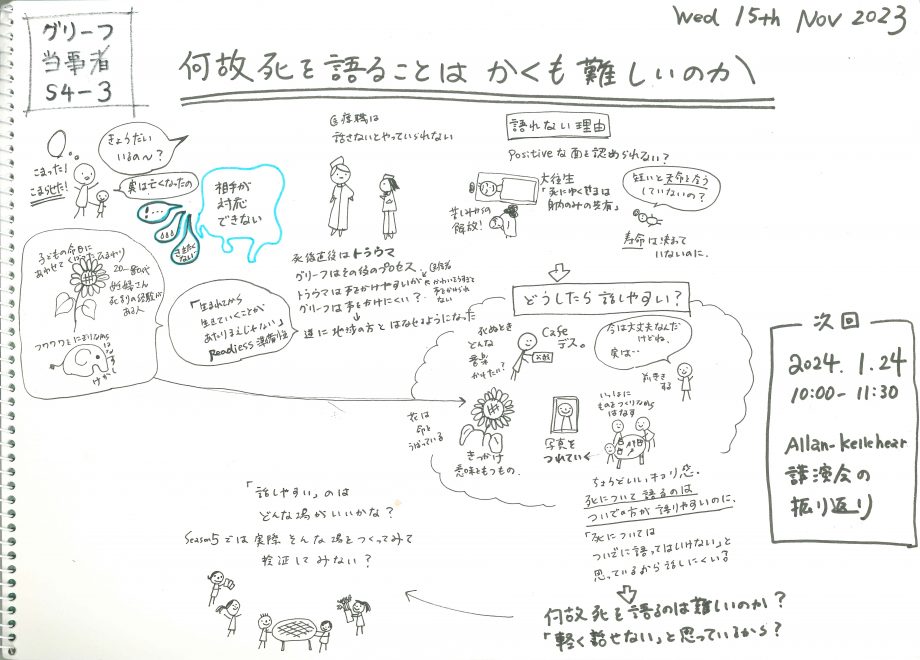 グリーフ
当事者
S4-3
Wed 15th Nov 2023
何故死を語ることは かくも難しいのか
こまった!
こまらせた!
きょうだい
いるの〜?
実は亡くなったの
!...
さえぎらない
相手が
対応
できない
は
話さないとやっていられない
語れない理由
Positiveな面を認められない?
大往生
「死にゆくさまは
苦しみからの
解放!
短いと天命を全う
していないの?
寿命は決まって
いないのに。
子どもの命日に
あわせて ひまわり
20〜80代
妊婦さん
死別の経験が
ある人
フワフワとにぎりながら
はなす
けがし
「生まれてから
生きていくことが
あたりまえじゃない」
Readiess 準備性
死後直後はトラウマ
グリーフはその後のプロセス
トラウマは声をかけやすいが
グリーフは声をかけにくい?
かわいそうすぎて
声をかけられ
ない
逆に地域の方とはなせるようになった
どうしたら話しやすい?
死ぬとき
どんな
音楽
かけたい?
Cafe
デス。
今は大丈夫なんだ
けどね、
実は…
前置き
する
花は
命を
うばっている
きっかけ
意味をもつもの.
写真を
つれていく
いっしょに
ものをつくりながら
はなす
ちょうどいいキョリ感.
死について語るのは
ついでの方が語りやすいのに.
「死については
ついでに語ってはいけない」と
思っているから話しにくい?
何故死を語るのは難しいのか?
「軽く話せない」と思っているから?
「話しやすい」のは
どんな場がいいかな?
Season5では実際そんな場をつくってみて
検証してみない?
次回
2024. 1.24
10:00-11:30
Allan-Kellehear
講演会の
振り返り